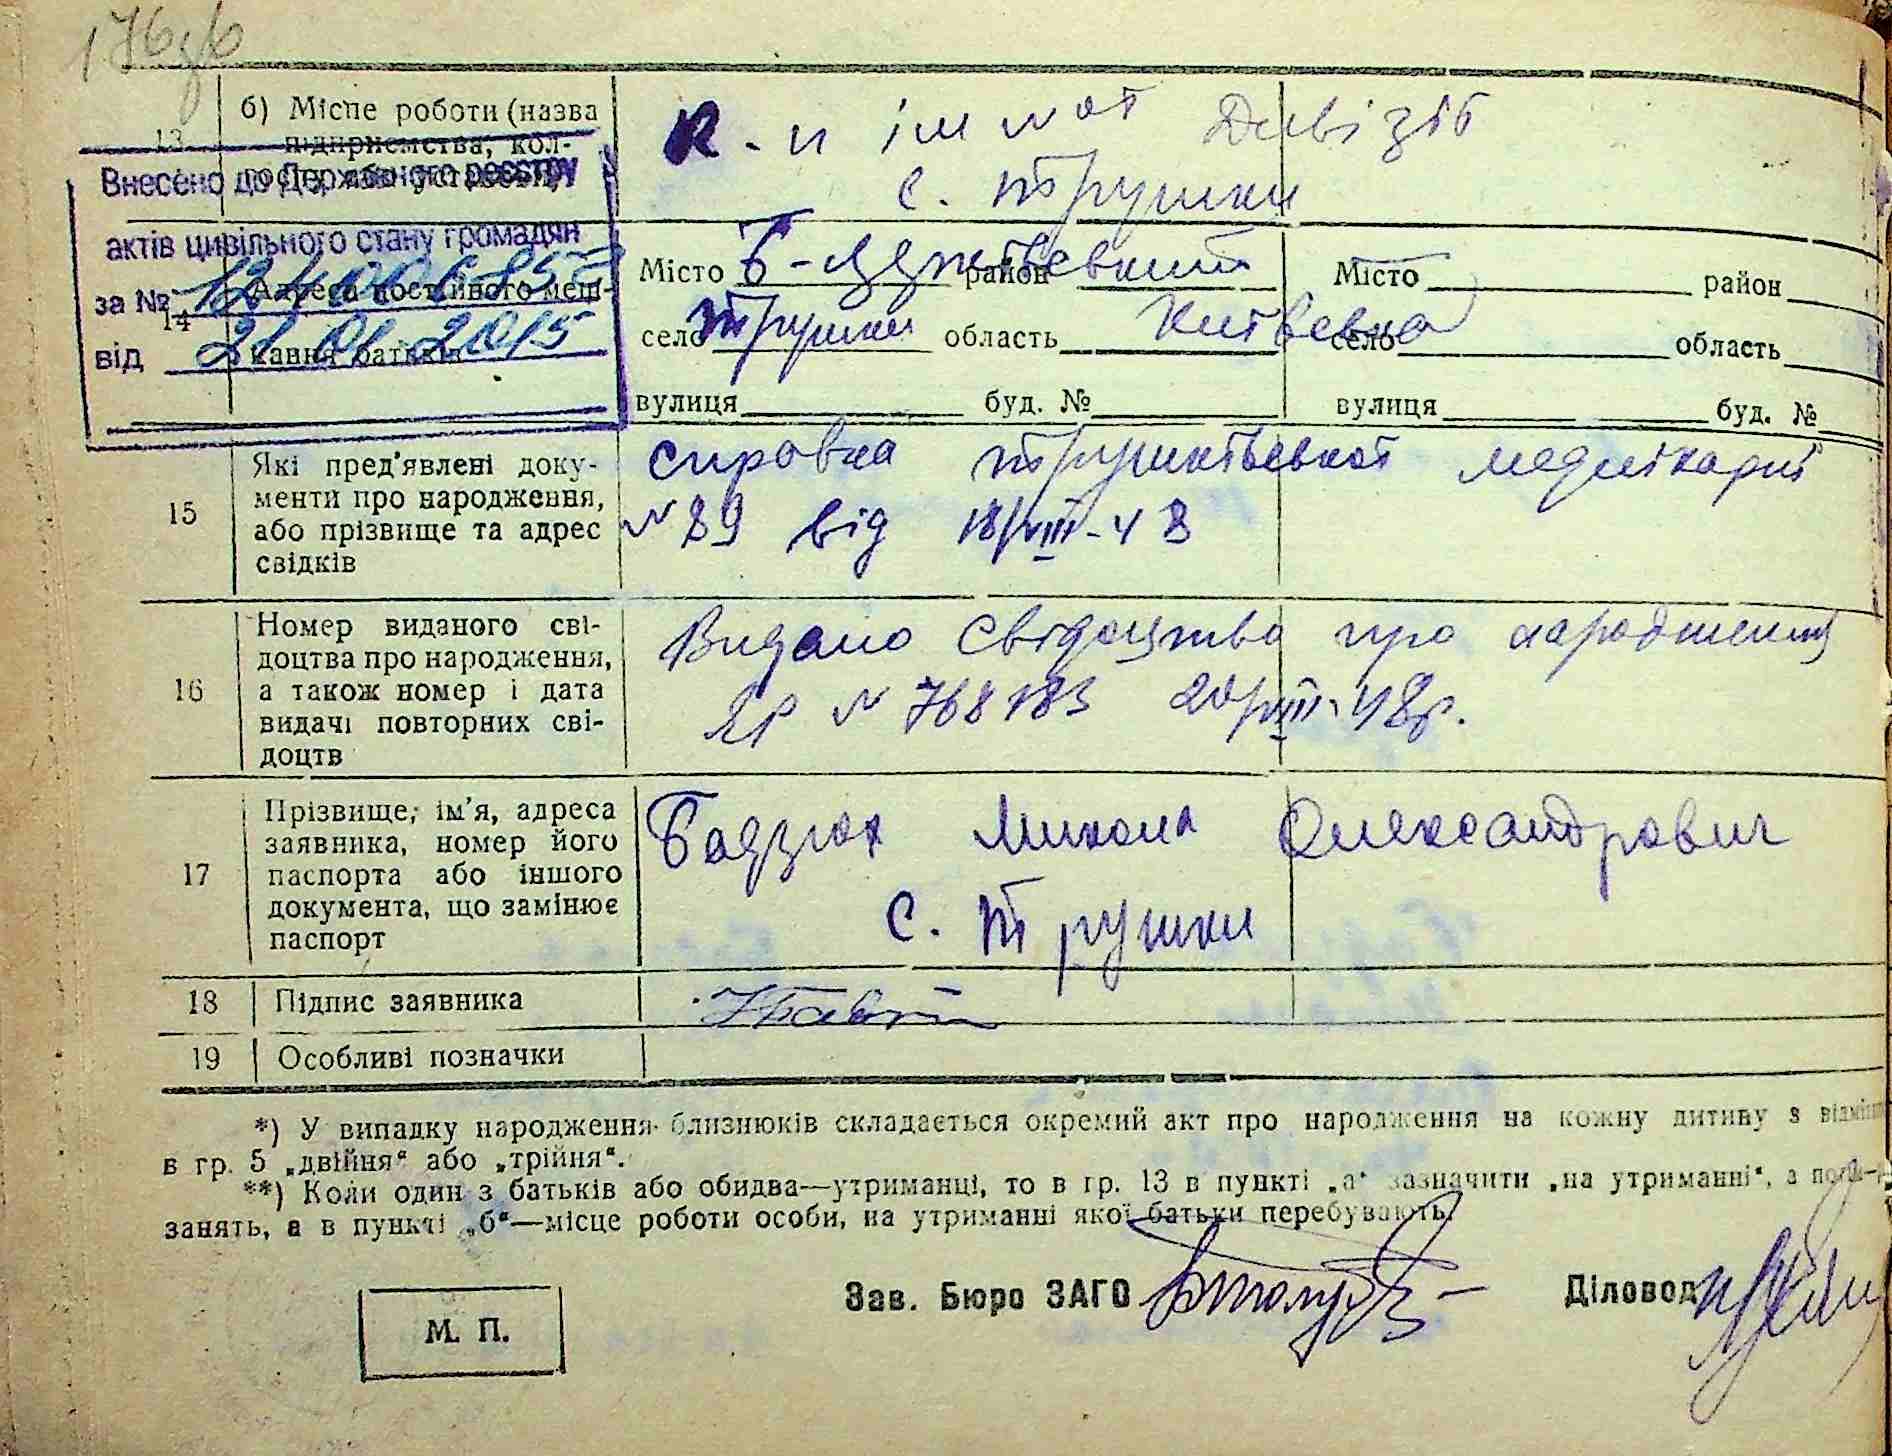 176зв
13
б) Місце роботи (назва
підприємства, кол-
госпу або установи)
к-п ім Дивізії
с. Трушки
Внесено до Державного реєстру
актів цивільного стану громадян
за №
від 21 01 2015
14
Адреса постійного меш-
кання батьків
Місто Б-Церківський район
село Трушки область Київська
вулиця буд. №
Місто район
село область
вулиця буд. №
15
Які пред'явлені доку-
менти про народження,
або прізвище та адрес
свідків
справка Трушківської
№ 89 від 18/VIII-48
16
Номер виданого сві-
доцтва про народження,
а також номер і дата
видачі повторних сві-
доцтв
Видано свідоцтво про народження
№ 768183 20/VIII-48р.
17
Прізвище, ім'я, адреса
заявника, номер його
паспорта або іншого
документа, що замінює
паспорт
Бадзюх Микола Олександрович
с. Трушки
18
Підпис заявника
19
Особливі позначки
*) У випадку народження близнюків складається окремий акт про народження на кожну дитину з
в гр. 5 „двійня“ або „трійня“.
**) Коли один з батьків або обидва—утриманці, то в гр. 13 в пункті „а“ зазначити „на утриманні“, а
занять, а в пункті „б“—місце роботи особи, на утриманні якої батьки перебувають.
Зав. Бюро ЗАГС
Діловод
М. П.